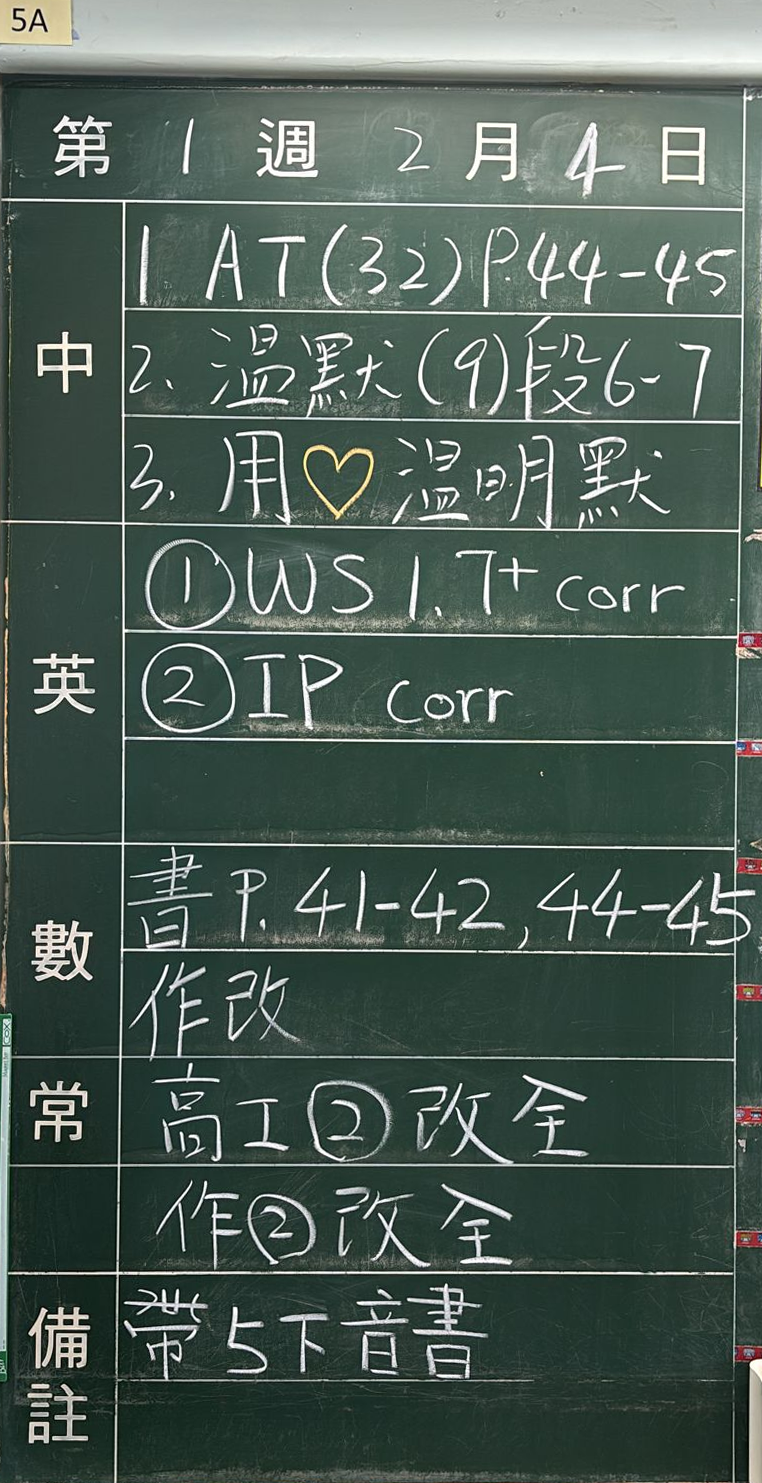 5A
第 1 週 2 月 4 日
中
1 AT(32) P.44-45
2. 溫默(9)段6-7
3. 用♡溫明默
英
①WS 1.7+ corr
②IP corr
數
書P. 41-42, 44-45
作改
常
高工②改全
作②改全
備註
帶5下音書